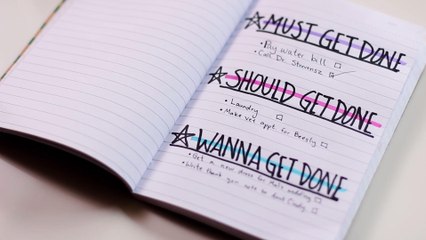 MUST GET DONE
• Pay water bill
• Call Dr. Stevensz
SHOULD GET DONE
• Laundry
• Make vet appt. for Beesly
WANNA GET DONE
• Get a new dress for wedding
• Write thank you note to Aunt Cindy